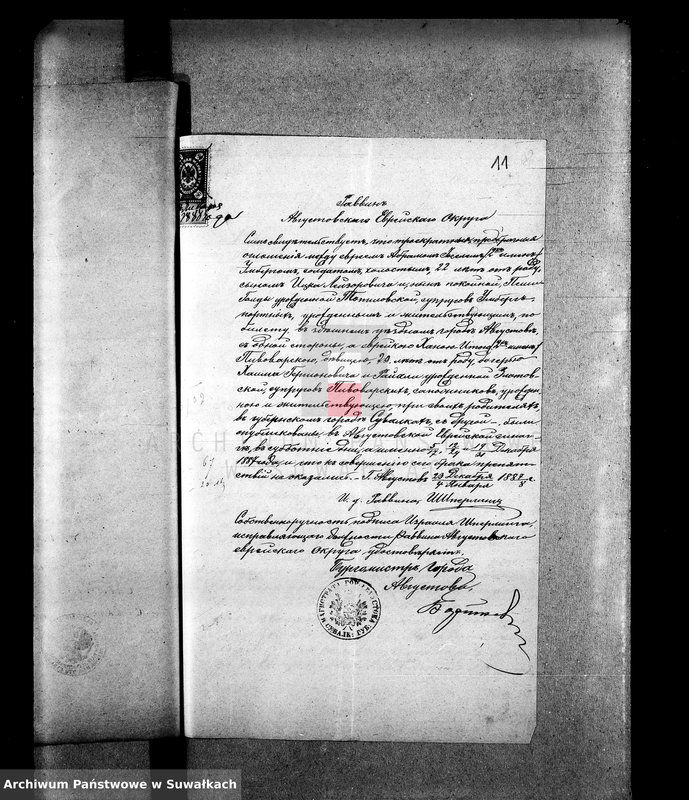 11
1888 года
Раввинъ
Августовскаго Еврейскаго Округа
Симъ свидѣтельствуетъ, что троекратныя предбрачныя
оглашенія между евреемъ Абрамомъ
солдатомъ, холостымъ, 22 лѣтъ отъ роду,
сыномъ Ицка Лейзеровича и нынѣ покойной,
Голды урожденной Топиловской, супруговъ
урожденнымъ и жительствующимъ, по
билету, въ здѣшнемъ уѣздномъ городѣ Августовѣ,
съ одной стороны, а еврейкою Ханою
Пивоварскою, дѣвицею, 20 лѣтъ отъ роду, дочерью
Хаима Гершоновича и урожденной
супруговъ Пивоварскихъ, сапожниковъ, урожден
ною и жительствующею, при своихъ родителяхъ,
въ губернскомъ городѣ Сувалкахъ, съ другой –, были
опубликованы въ Августовской Еврейской синаго-
гѣ, въ субботніе дни, а именно: 5/17, 12/24 и 19/31 Декабря
1887 года, и что къ совершенію сего брака препят-
ствій не оказалось. – Г. Августовъ 23 Декабря / 4 Января 1887/8 г.
И. д. Раввина,
Собственноручность подписа Израиля
исправляющаго должность Раввина Августовскаго
еврейскаго Округа удостовѣряетъ.
Бургомистръ Города
Августова,
МАГИСТРАТА ГОР. АВГУСТОВА
СУВАЛК: ГУБ.
Archiwum Państwowe w Suwałkach